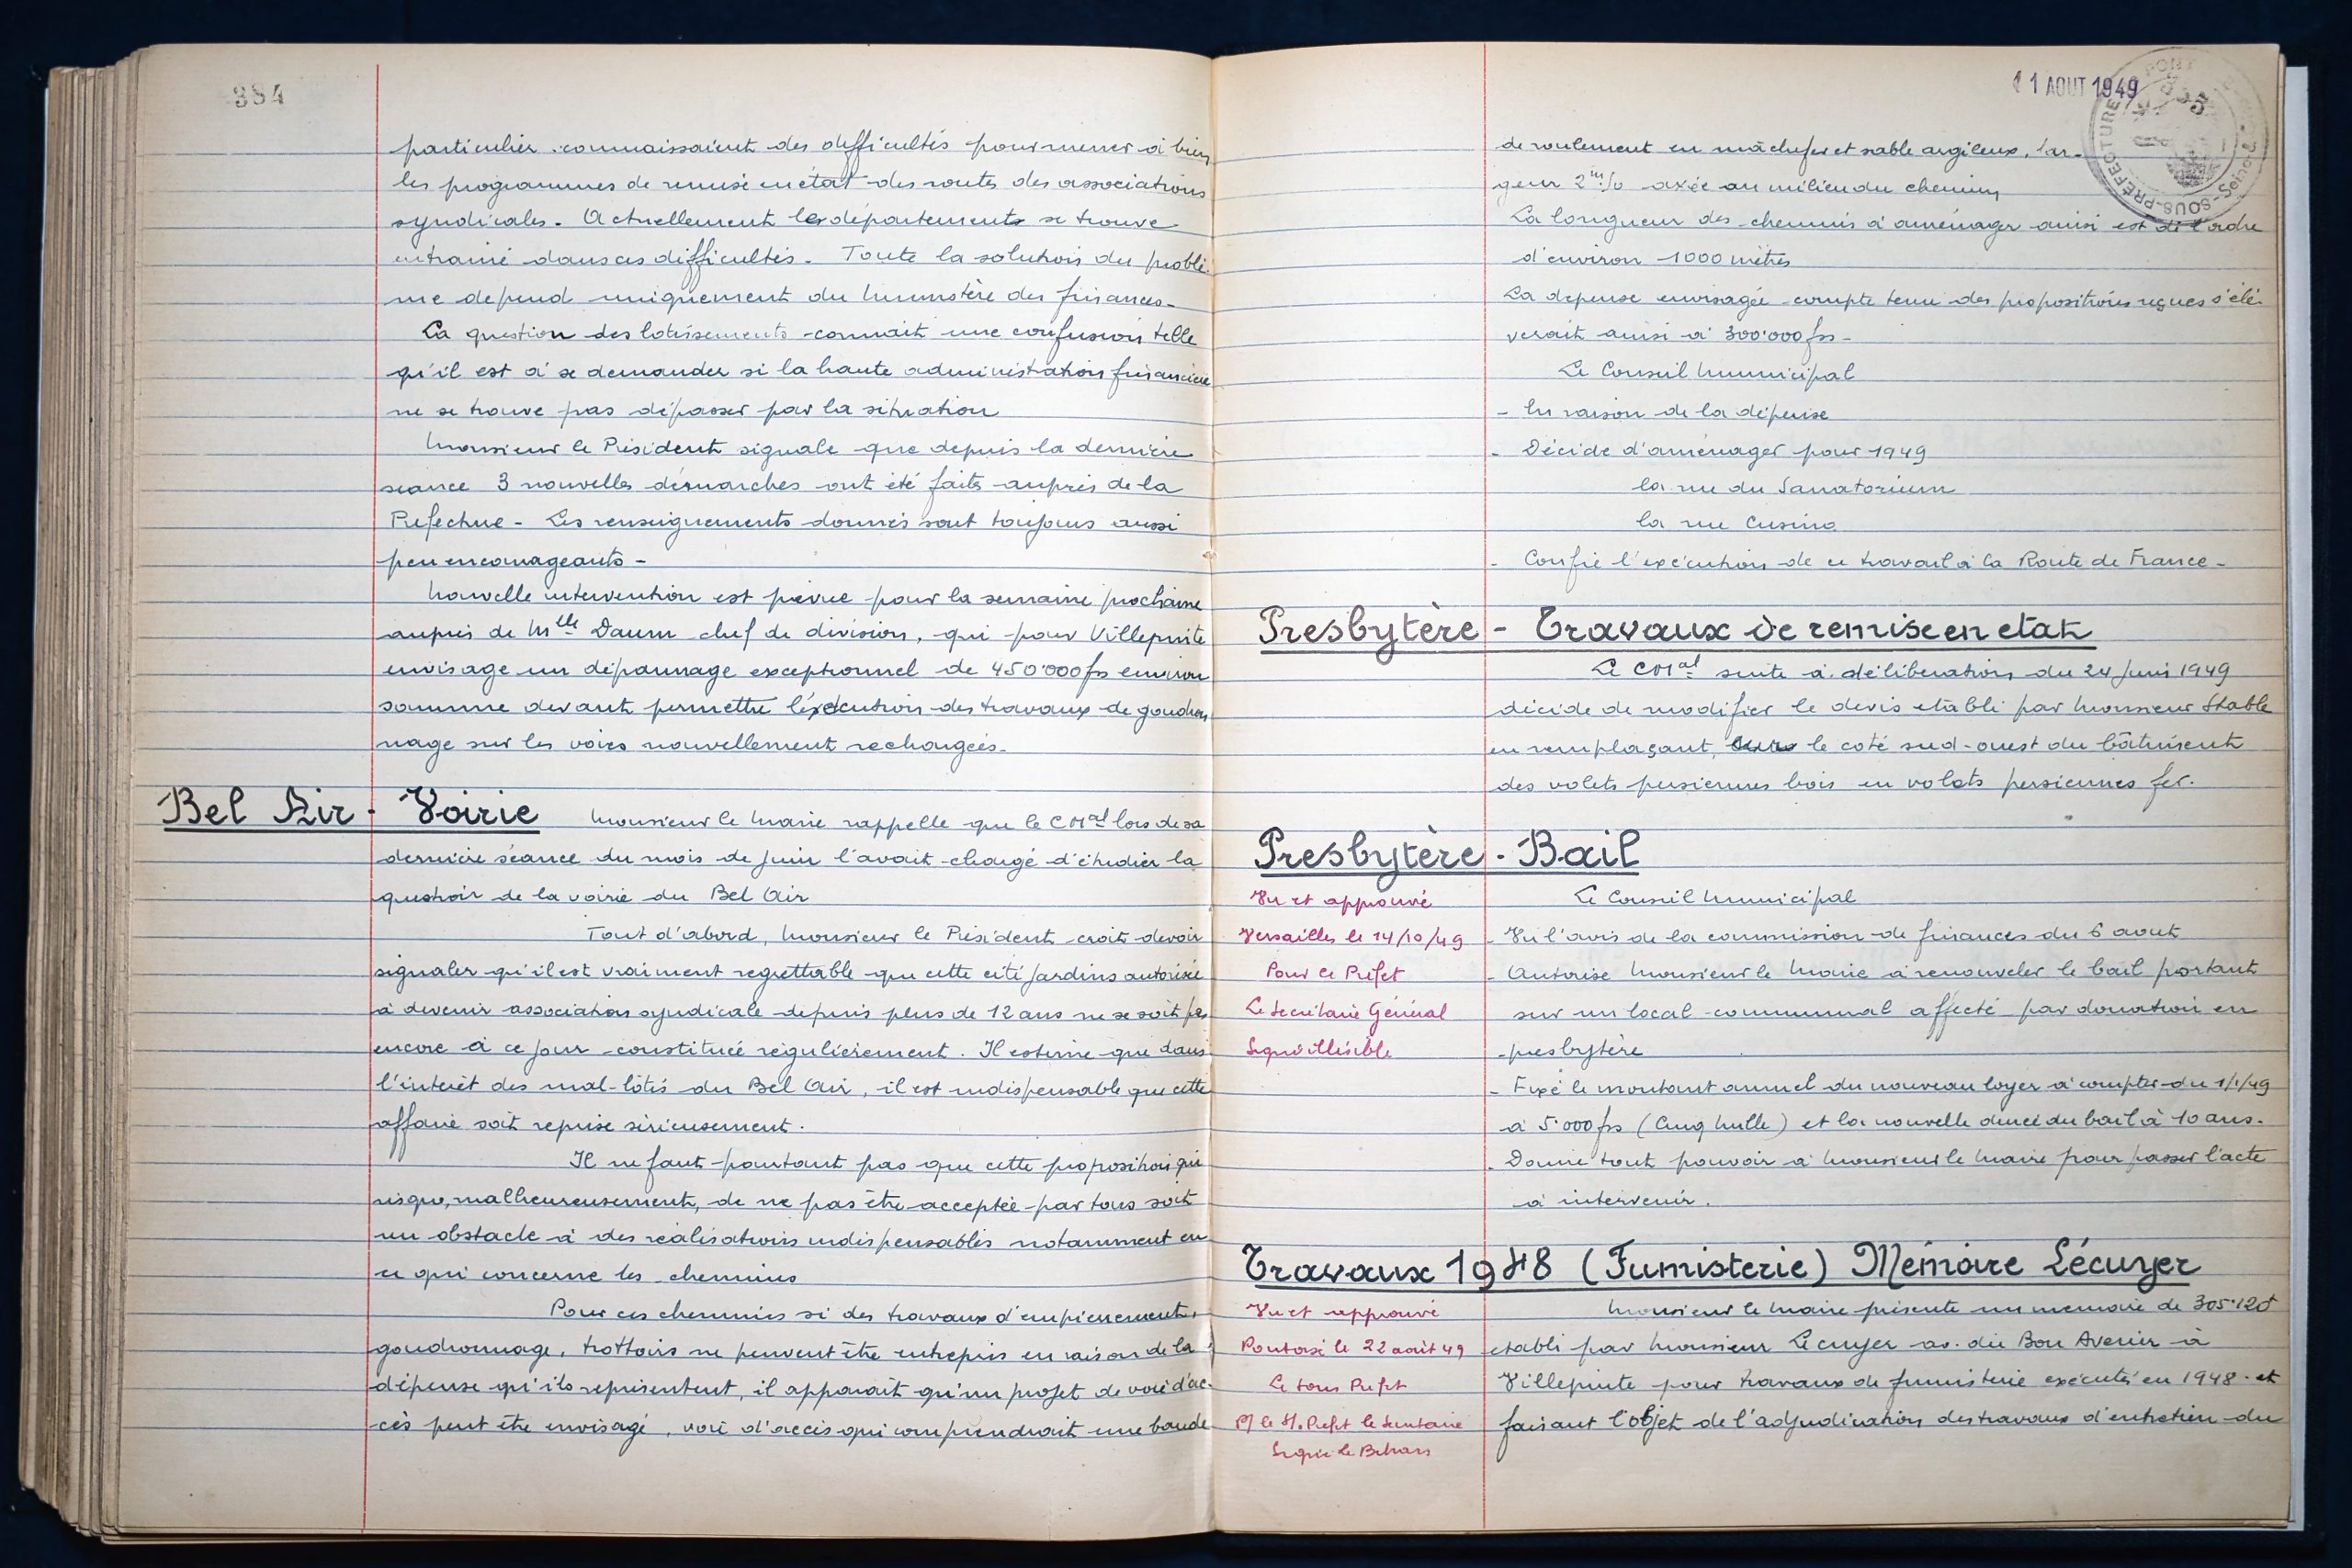 384
particulier connaissaient des difficultés pour mener à bien
les programmes de remise en état des routes des associations
syndicales. Actuellement les départements se trouve
entrainé dans ces difficultés. Toute la solution du problè-
me depend uniquement du Ministère des finances.
La question des lotissements connait une confusion telle
qu'il est à se demander si la haute administration financière
ne se trouve pas dépasser par la situation
Monsieur le Président signale que depuis la dernière
séance 3 nouvelles démarches ont été faites auprès de la
Prefecture - Les renseignements donnés sont toujours aussi
peu encourageants -
Nouvelle intervention est prévue pour la semaine prochaine
auprès de Mlle Daum chef de division, qui pour Villepinte
envisage un dépannage exceptionnel de 450'000 frs environ
somme devant permettre l'exécution des travaux de goudron
nage sur les voies nouvellement rechargées.
Bel Air - Voirie
Monsieur le Maire rappelle que le CMal lors de sa
dernière séance du mois de Juin l'avait chargé d'étudier la
question de la voirie du Bel Air
Tout d'abord, Monsieur le Président croit devoir
signaler qu'il est vraiment regrettable que cette cité jardins autorisée
à devenir association syndicale depuis plus de 12 ans ne se soit pas
encore à ce jour constituée régulièrement. Il estime que dans
l'intérêt des mal-lotis du Bel Air, il est indispensable que cette
affaire soit reprise sérieusement.
Il ne faut pourtant pas que cette proposition qui
risque, malheureusement, de ne pas être acceptée par tous soit
un obstacle à des réalisations indispensables notamment en
ce qui concerne les chemins
Pour ces chemins si des travaux d'empierrement,
goudronnage, trottoirs ne peuvent être entrepris en raison de la
dépense qu'ils représentent, il apparait qu'un projet de voie d'ac-
cès peut être envisagé, voie d'accès qui comprendrait une bande
11 AOUT 1949
385
SOUS-PRÉFECTURE
de roulement en mâchefer et sable argileux, lar-
geur 2m50 axée au milieu du chemin
La longueur des chemins à aménager ainsi est de l'ordre
d'environ 1000 mètres
La depense envisagée compte tenu des propositions reçues s'élè-
verait ainsi à 300'000 frs -
Le Conseil Municipal
- En raison de la dépense
- Décide d'aménager pour 1949
la rue du Sanatorium
la rue Cusino
- Confie l'exécution de ce travail à la Route de France -
Presbytère - Travaux de remise en etat
Le CMal suite à délibération du 24 Juin 1949
décide de modifier le devis établi par Monsieur Stable
en remplaçant, le coté sud-ouest du bâtiment
des volets persiennes bois en volets persiennes fer.
Presbytère - Bail
Vu et approuvé
Versailles le 14/10/49
Pour le Préfet
Le Secrétaire Général
Signé illisible
Le Conseil Municipal
- Vu l'avis de la commission de finances du 6 aout
- Autorise Monsieur le Maire à renouveler le bail portant
sur un local communal affecté par donation en
presbytère
- Fixé le montant annuel du nouveau loyer à compter du 1/1/49
à 5'000 frs (Cinq Mille) et la nouvelle durée du bail à 10 ans.
- Donne tout pouvoir à Monsieur le Maire pour passer l'acte
à intervenir.
Travaux 1948 (Fumisterie) Mémoire Lécuyer
Vu et approuvé
Pontoise le 22 août 49
Le Sous Prefet
P/ le S/. Prefet le Secrétaire
Signé
Monsieur le Maire présente un memoire de 305'120f
etabli par Monsieur Lecuyer av. du Bon Avenir à
Villepinte pour travaux de fumisterie exécutés en 1948 et
faisant l'objet de l'adjudication des travaux d'entretien du